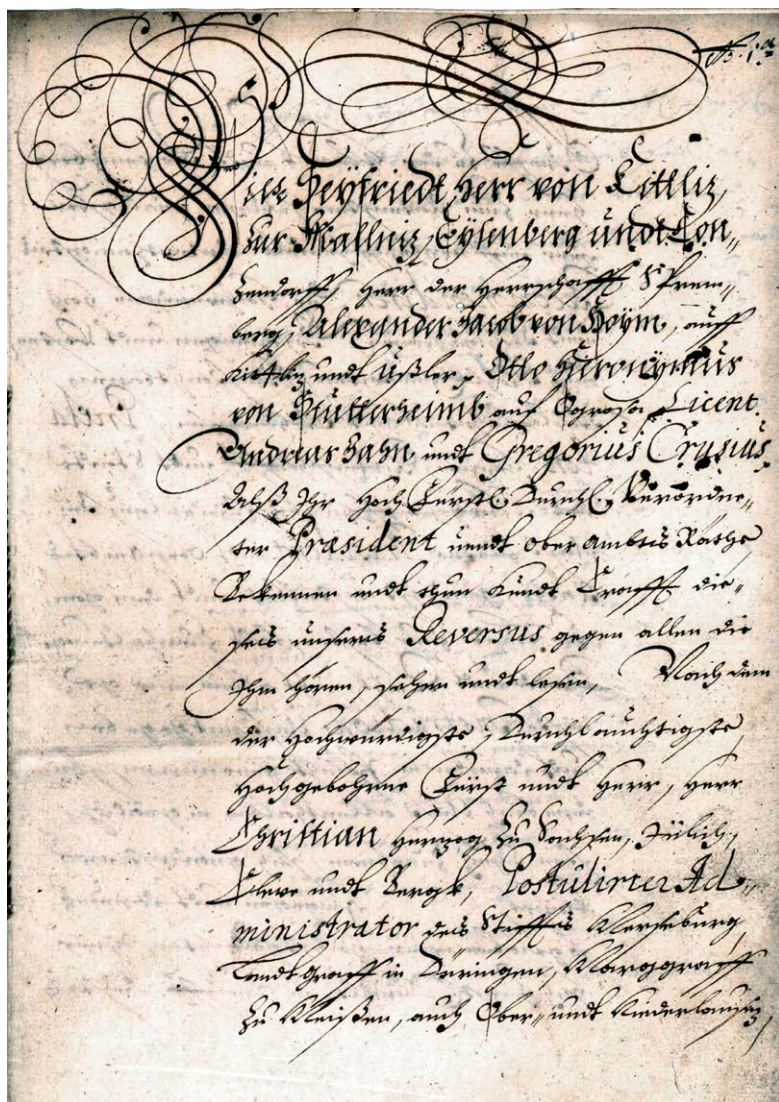 Wir Seyfriedt, Herr von Kittliz,
zur Mallniz, Eylenberg undt Con„
zendorff, Herr der Herrschafft Sprem„
berg, Alexander Jacob von Hoym, auff
undt Ußler, Otto Hieronymus
von Stutterheimb auf Ogrosa, Licent.
Andreas Zahn undt Gregorius Crusius
Alß Ihr Hoch Fürstl. Durchl. Verordne„
ter Præsident undt ober Ambts Räthe,
Bekennen undt thun kundt Krafft die„
ses unsers Reversus gegen allen die
Ihn hören, sehen undt lesen, Nach dem
der Hochwürdigste, Durchläuchtigste,
Hochgebohrne Fürst undt Herr, Herr
Christian Herzog zu Sachsen, Jülich,
Cleve undt Bergk, Postulirter Ad„
ministrator des Stiffts Merseburg,
Landtgraff in Düringen, Marggraff
zu Meißen, auch Ober„ undt Niederlausiz,